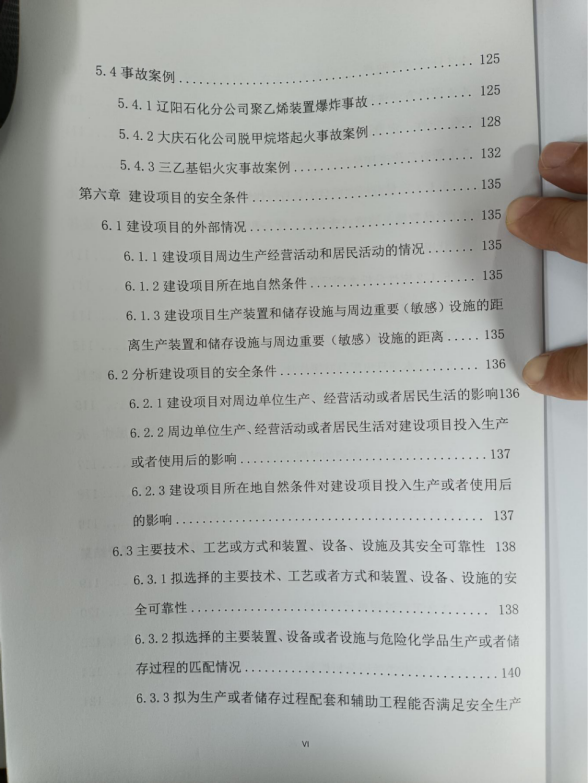 5.4 事故案例 ........................................ 125
5.4.1 辽阳石化分公司聚乙烯装置爆炸事故 .............. 125
5.4.2 大庆石化公司脱甲烷塔起火事故案例 .............. 128
5.4.3 三乙基铝火灾事故案例 ......................... 132
第六章 建设项目的安全条件 .............................. 135
6.1 建设项目的外部情况 ............................... 135
6.1.1 建设项目周边生产经营活动和居民活动的情况 ....... 135
6.1.2 建设项目所在地自然条件 ........................ 135
6.1.3 建设项目生产装置和储存设施与周边重要（敏感）设施的距
离生产装置和储存设施与周边重要（敏感）设施的距离 ..... 135
6.2 分析建设项目的安全条件 ............................ 136
6.2.1 建设项目对周边单位生产、经营活动或者居民生活的影响136
6.2.2 周边单位生产、经营活动或者居民生活对建设项目投入生产
或者使用后的影响 .................................... 137
6.2.3 建设项目所在地自然条件对建设项目投入生产或者使用后
的影响 ............................................. 137
6.3 主要技术、工艺或方式和装置、设备、设施及其安全可靠性 138
6.3.1 拟选择的主要技术、工艺或者方式和装置、设备、设施的安
全可靠性 ........................................... 138
6.3.2 拟选择的主要装置、设备或者设施与危险化学品生产或者储
存过程的匹配情况 .................................... 140
6.3.3 拟为生产或者储存过程配套和辅助工程能否满足安全生产
VI